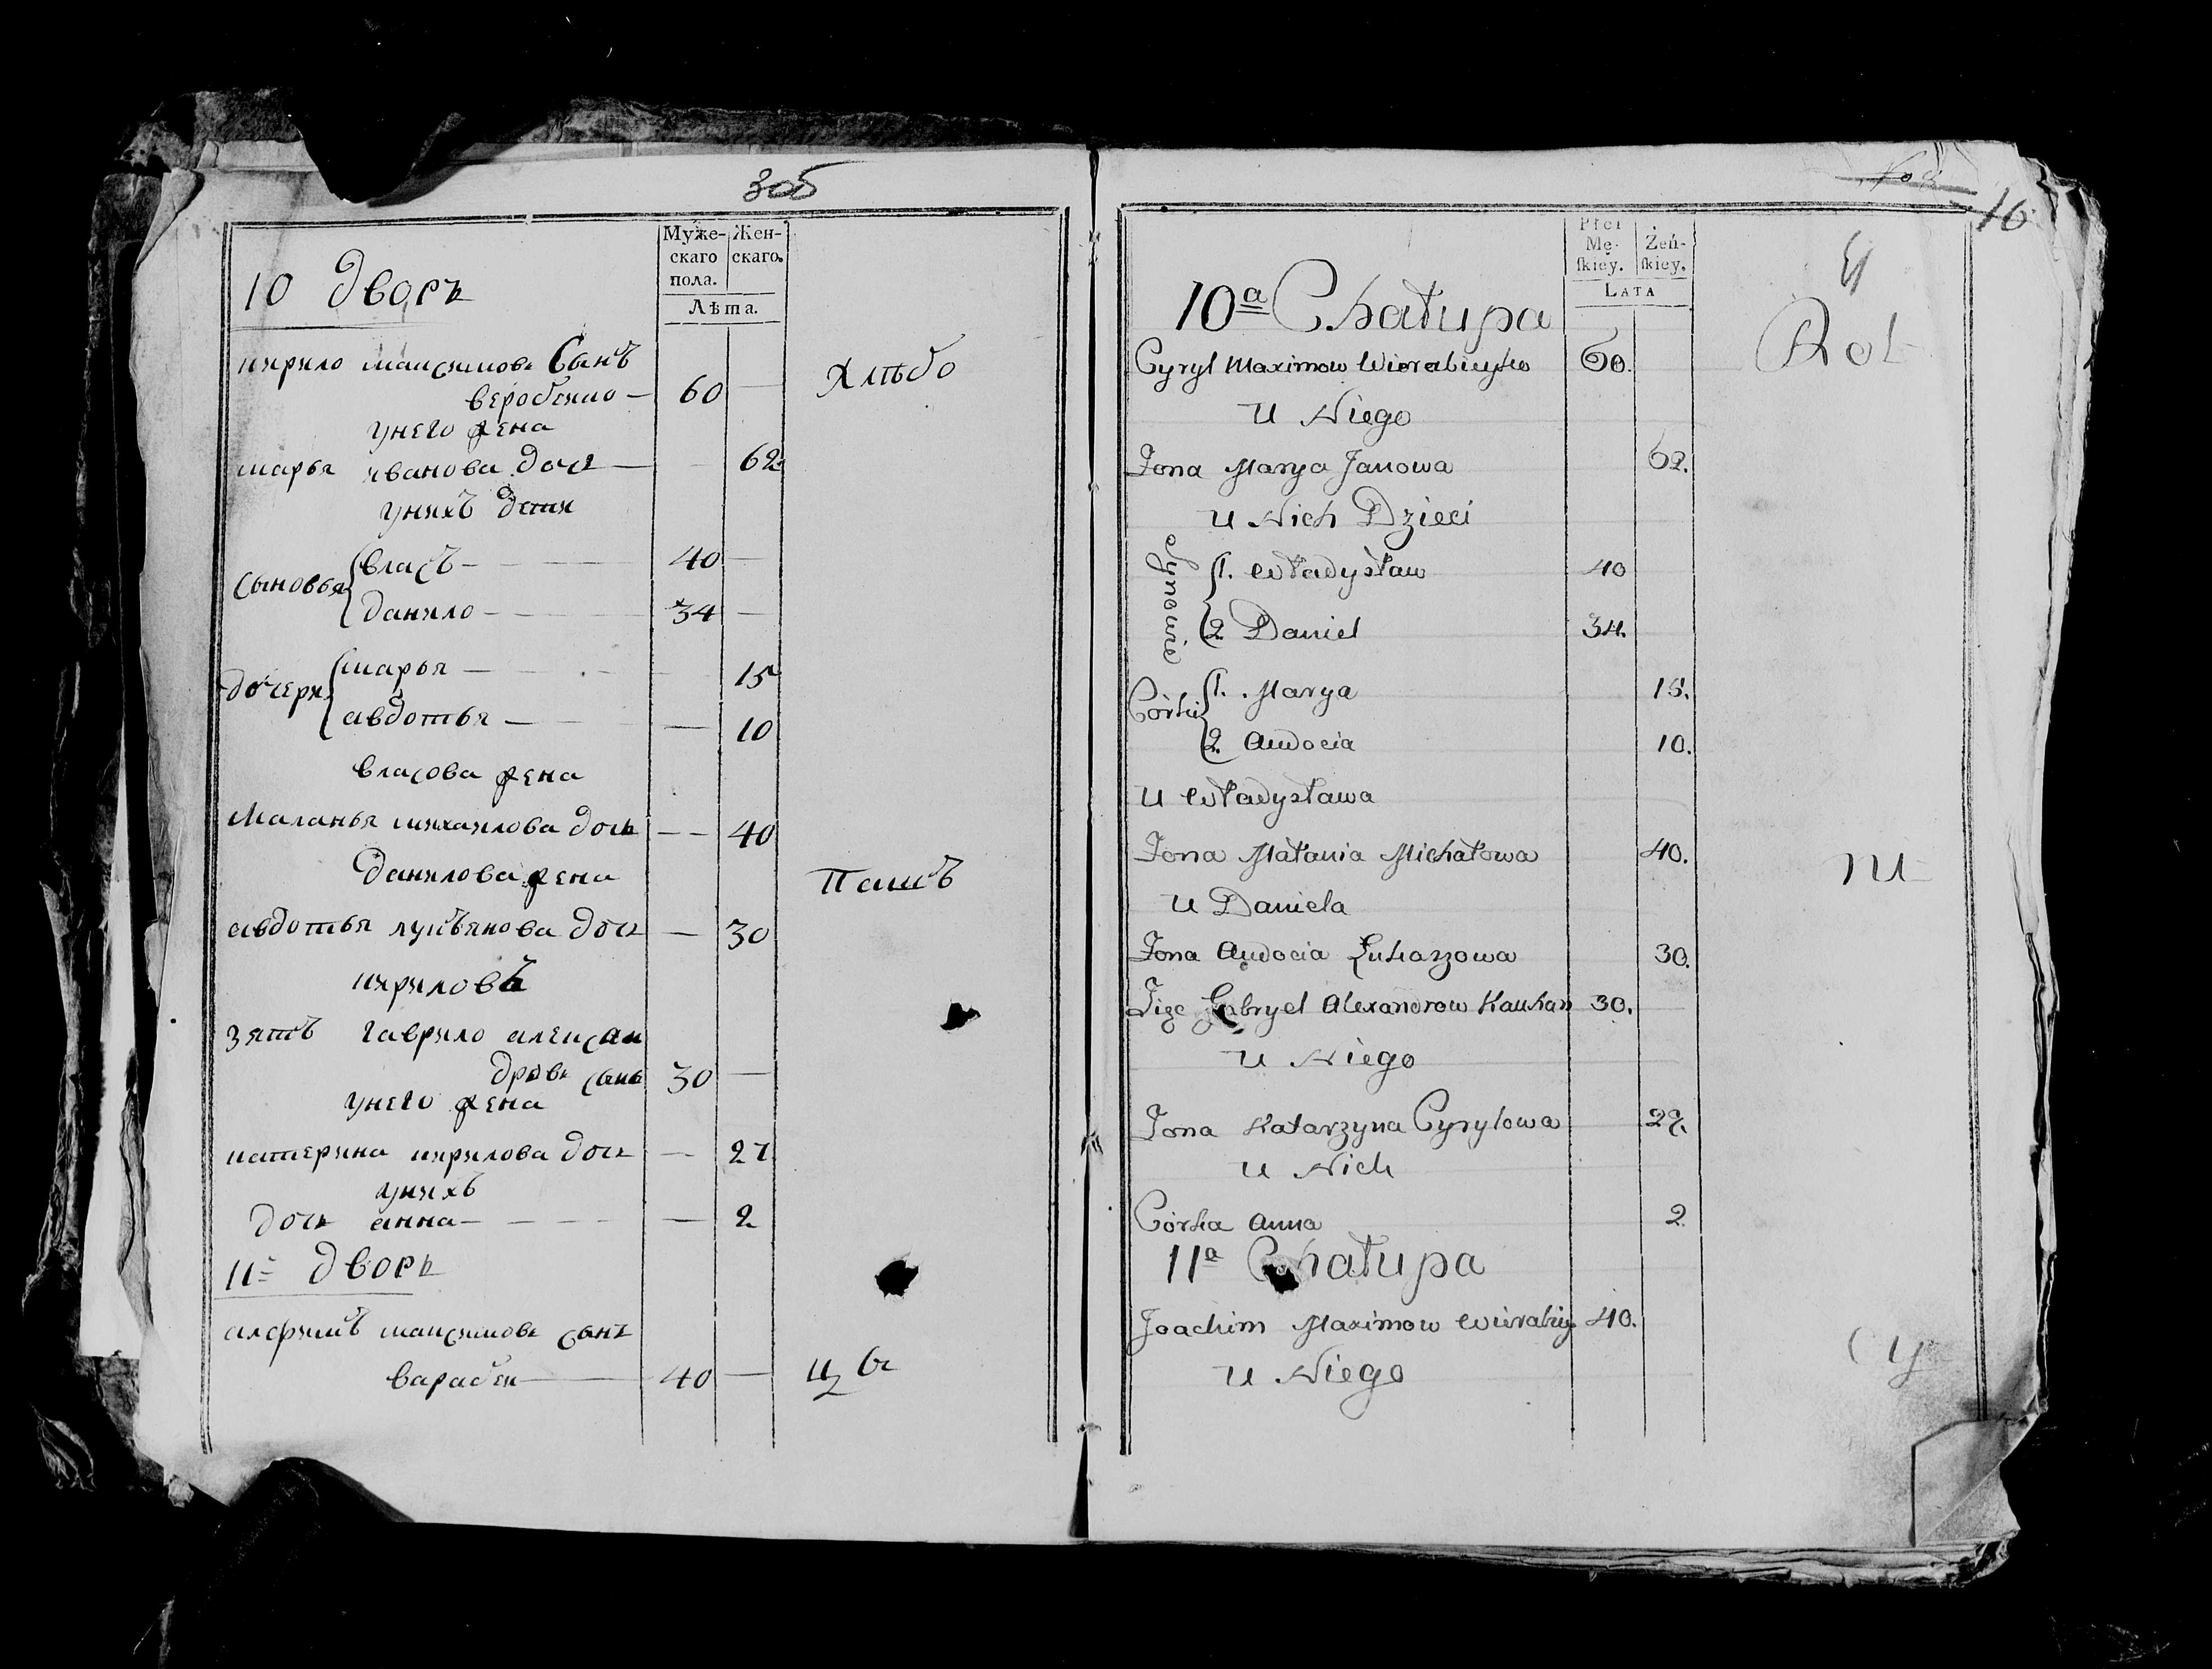 305
Муже-
скаго
пола.
Жен-
скаго.
Лѣта.
10 дворъ
кирило максимовъ Сынъ
веробеико — 60 —
унего жена
марья иванова дочь — — 62
унихъ дети
Сыновья
власъ — 40 —
данило — 34 —
дочери
марья — — 15
авдотья — — 10
власова жена
Маланья михаилова дочь — — 40
данилова жена
авдотья лукъянова дочь — 30
кириловъ
зять гаврило алексан
дровъ сынъ 30 —
унего жена
катерина кирилова дочь — 27
унихъ
дочь анна — — 2
11 дворъ
максимовъ сынъ
варабеи — 40 —
Хлѣбо
Пашъ
ц
16
Płci
Mę-
skiey.
Żeń-
skiey.
LATA
10a Chałupa
Cyryl Maximow Wierabieyko 60.
U Niego
Żona Marya Janowa 62.
U Nich Dzieci
Synowie
1. Władysław 40
2 Daniel 34.
Córki
1. Marya 15.
2 Audocia 10.
U Władysława
Żona Małania Michałowa 40.
U Daniela
Żona Audocia Łukaszowa 30.
Zięć Gabryel Alexandrow Kaukan 30.
U Niego
Żona Katarzyna Cyryłowa 27.
U Nich
Córka Anna 2
11a Chałupa
Joachim Maximow 40.
U Niego
Rol
ni
cy